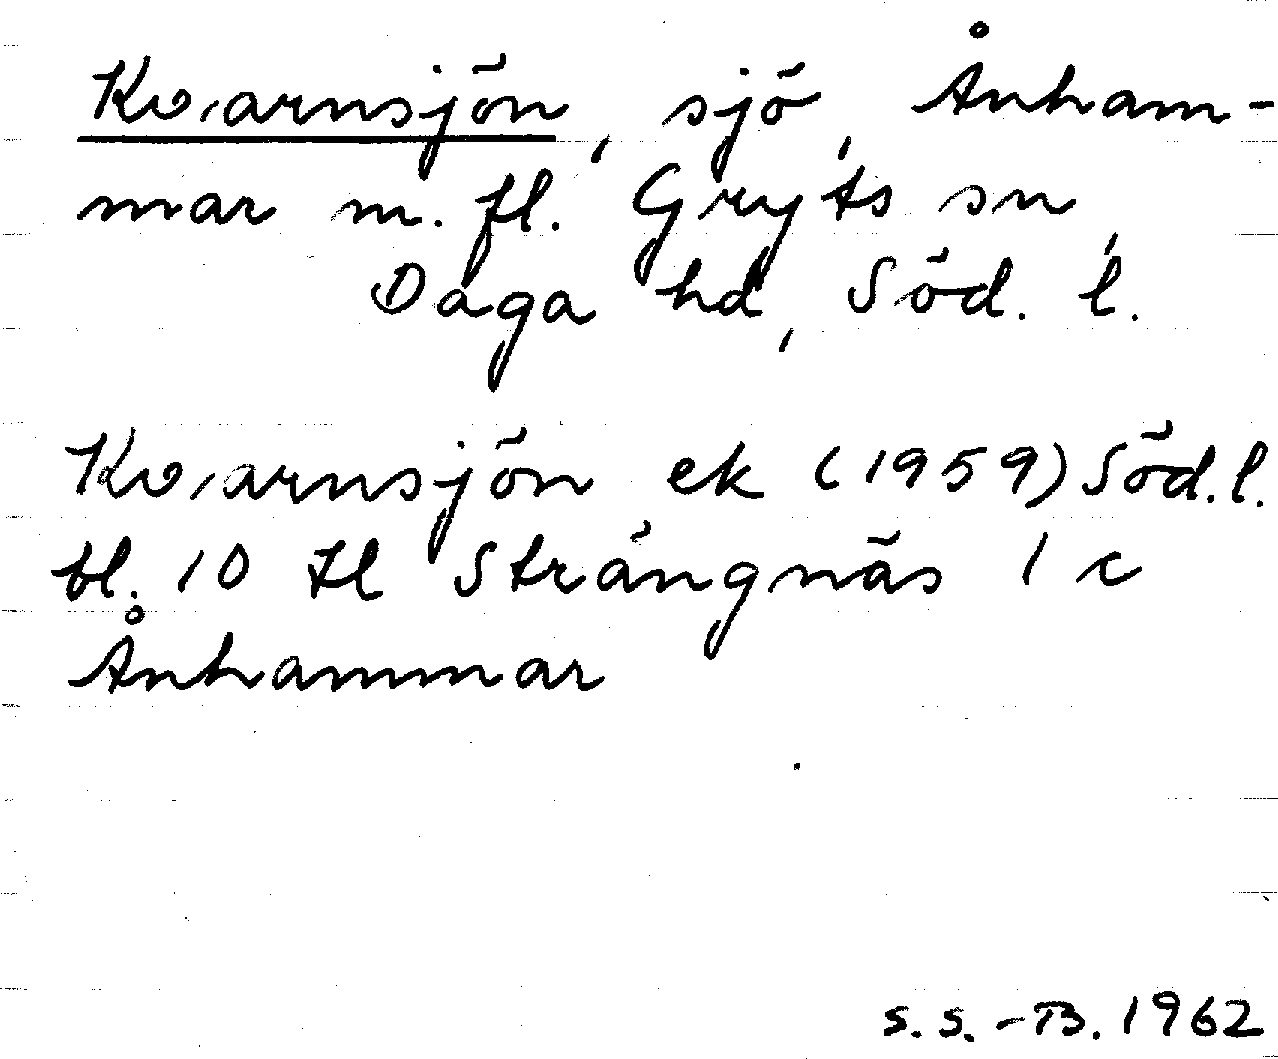 Kvarnsjön, sjö, Ånham-
mar m. fl. Gryts sn,
Daga hd, Söd. l.
Kvarnsjön ek (1959) Söd. l.
bl. 10 tl Strängnäs 1 c
Ånhammar
S. S. -B. 1962